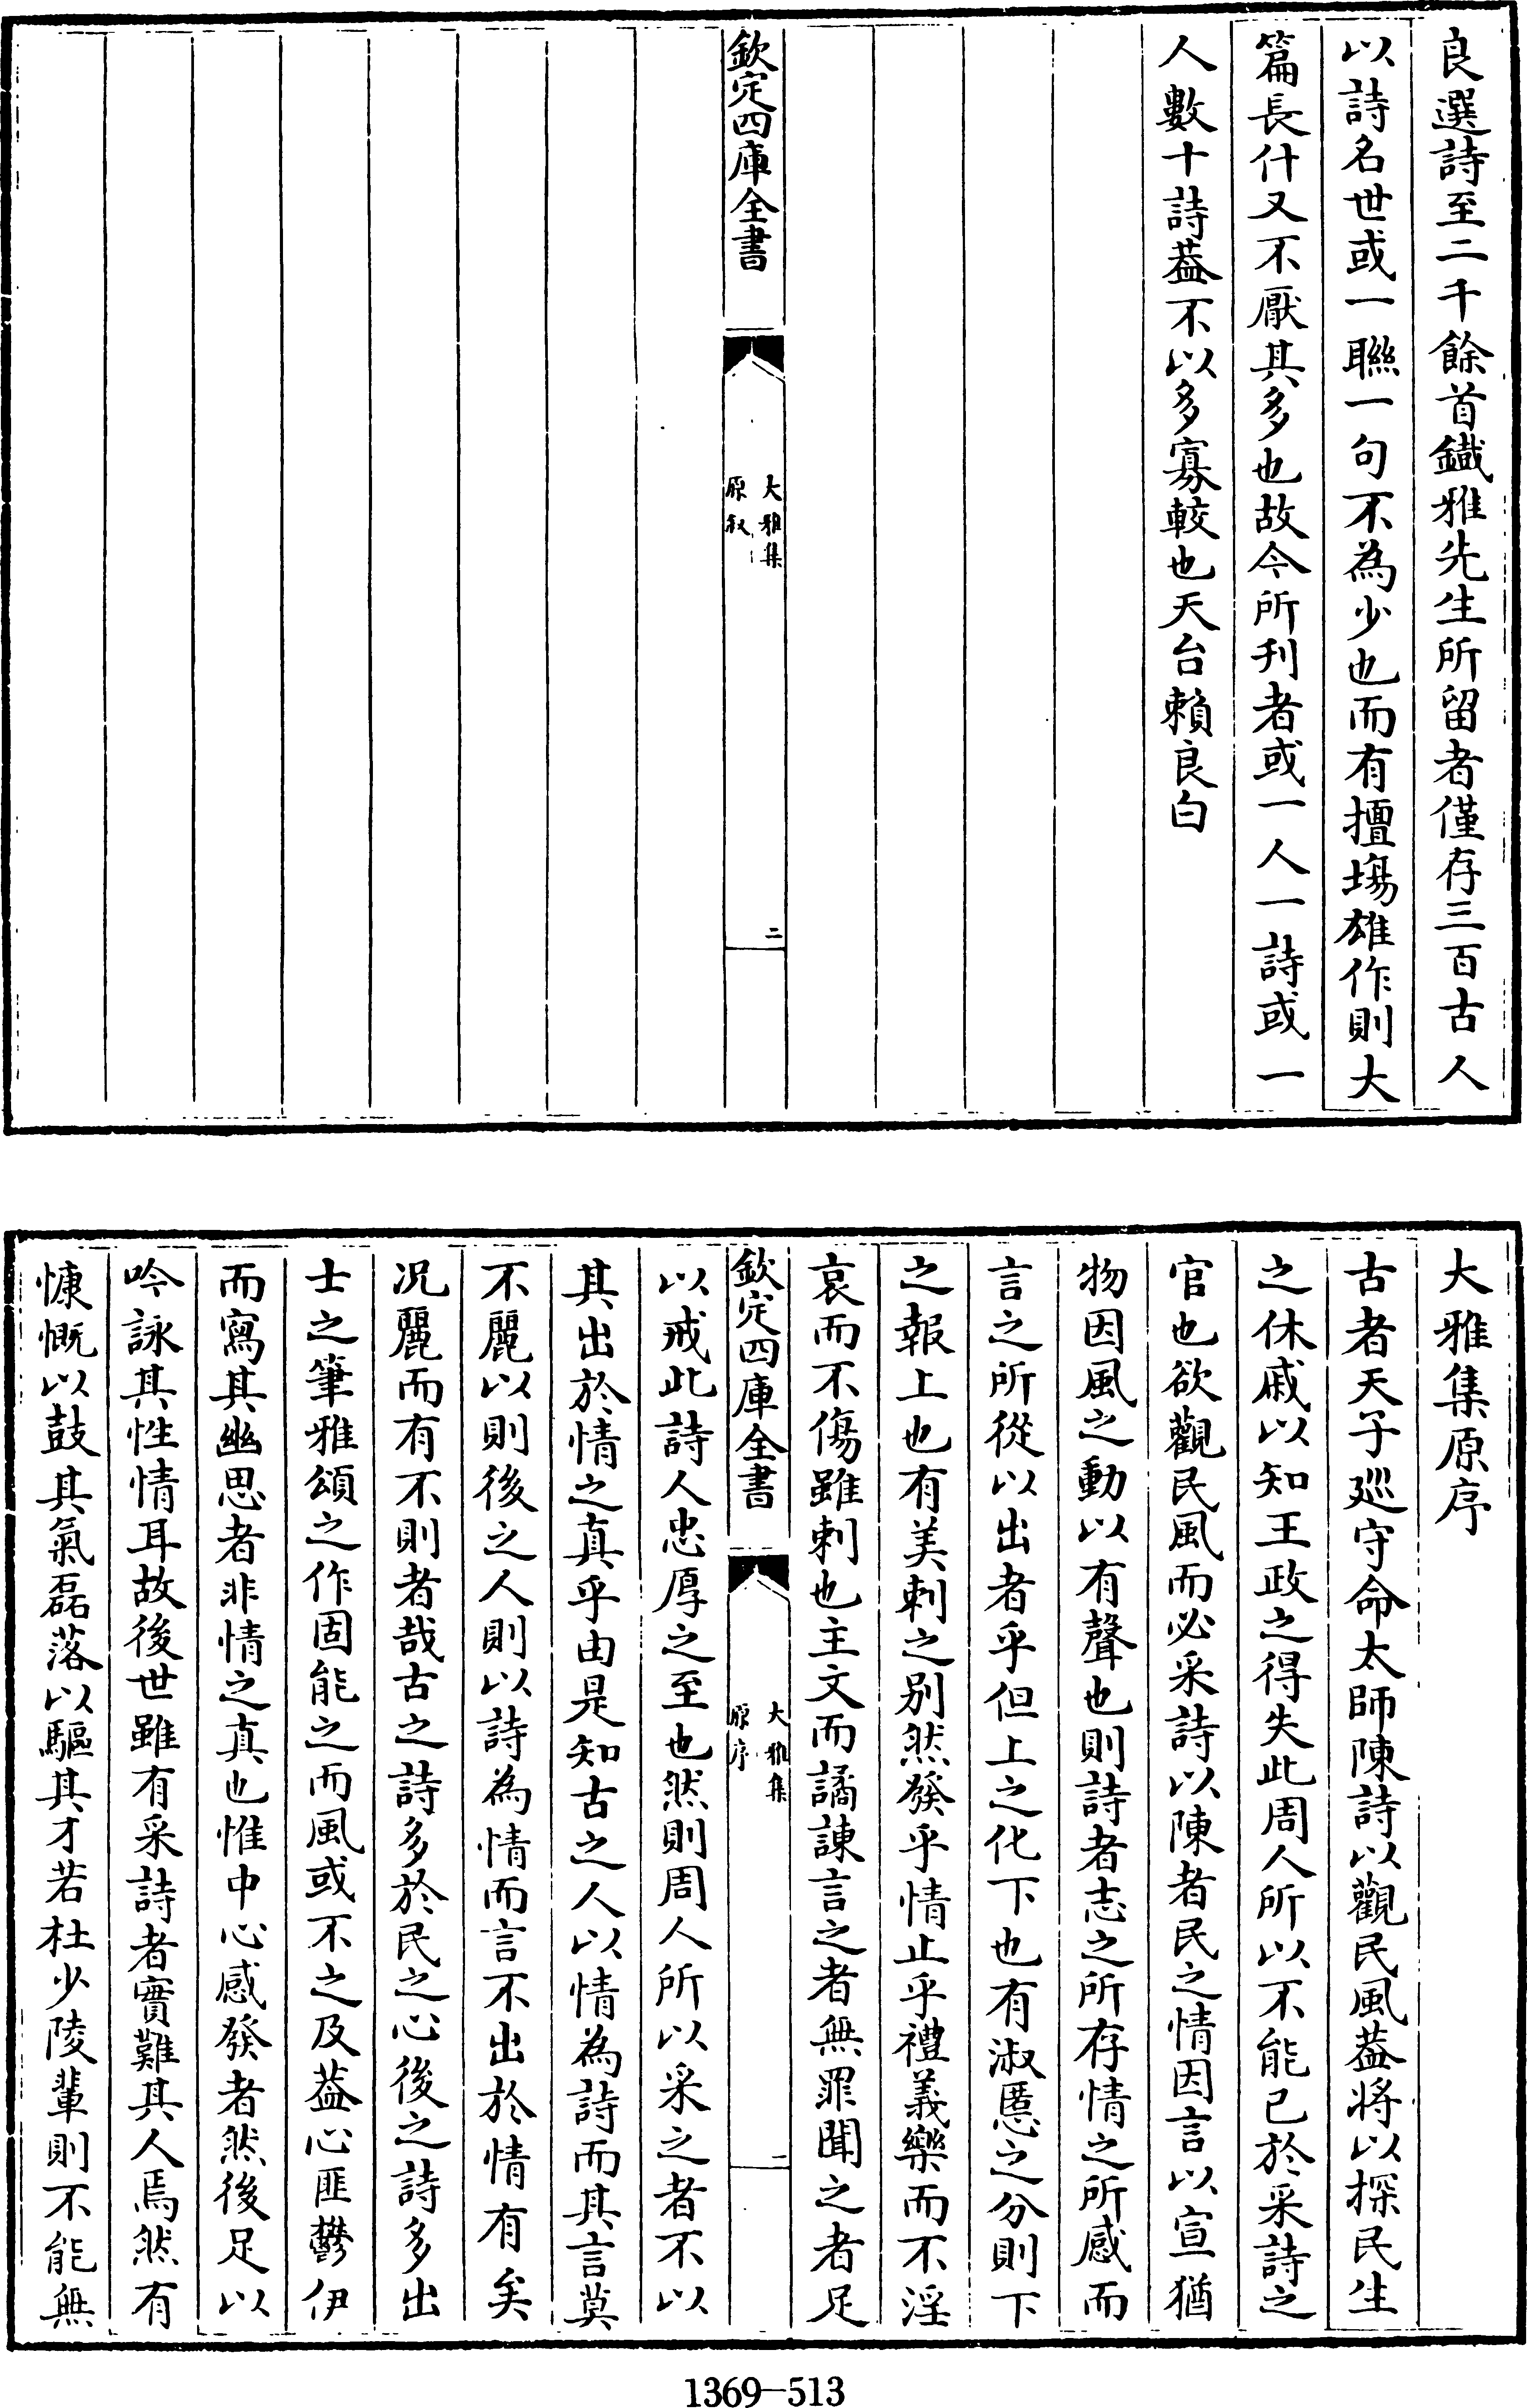 良選詩至二千餘首鐡雅先生所留者僅存三百古人
以詩名世或一聮一句不為少也而有擅塲雄作則大
篇長什又不厭其多也故今所刋者或一人一詩或一
人數十詩葢不以多寡較也天台賴良白
欽定四庫全書
大雅集
原敘
二
大雅集原序
古者天子廵守命太師陳詩以觀民風葢将以探民生
之休戚以知王政之得失此周人所以不能已於采詩之
官也欲觀民風而必采詩以陳者民之情因言以宣猶
物因風之動以有聲也則詩者志之所存情之所感而
言之所從以出者乎但上之化下也有淑慝之分則下
之報上也有美刺之别然發乎情止乎禮義樂而不淫
哀而不傷雖刺也主文而譎諫言之者無罪聞之者足
欽定四庫全書
大雅集
原序
一
以戒此詩人忠厚之至也然則周人所以采之者不以
其出於情之真乎由是知古之人以情為詩而其言莫
不麗以則後之人則以詩為情而言不出於情有矣
况麗而有不則者哉古之詩多於民之心後之詩多出
士之筆雅頌之作固能之而風或不之及葢心匪鬱伊
而寫其幽思者非情之真也惟中心感發者然後足以
吟詠其性情耳故後世雖有采詩者實難其人焉然有
慷慨以鼓其氣磊落以驅其才若杜少陵輩則不能無
1369—513